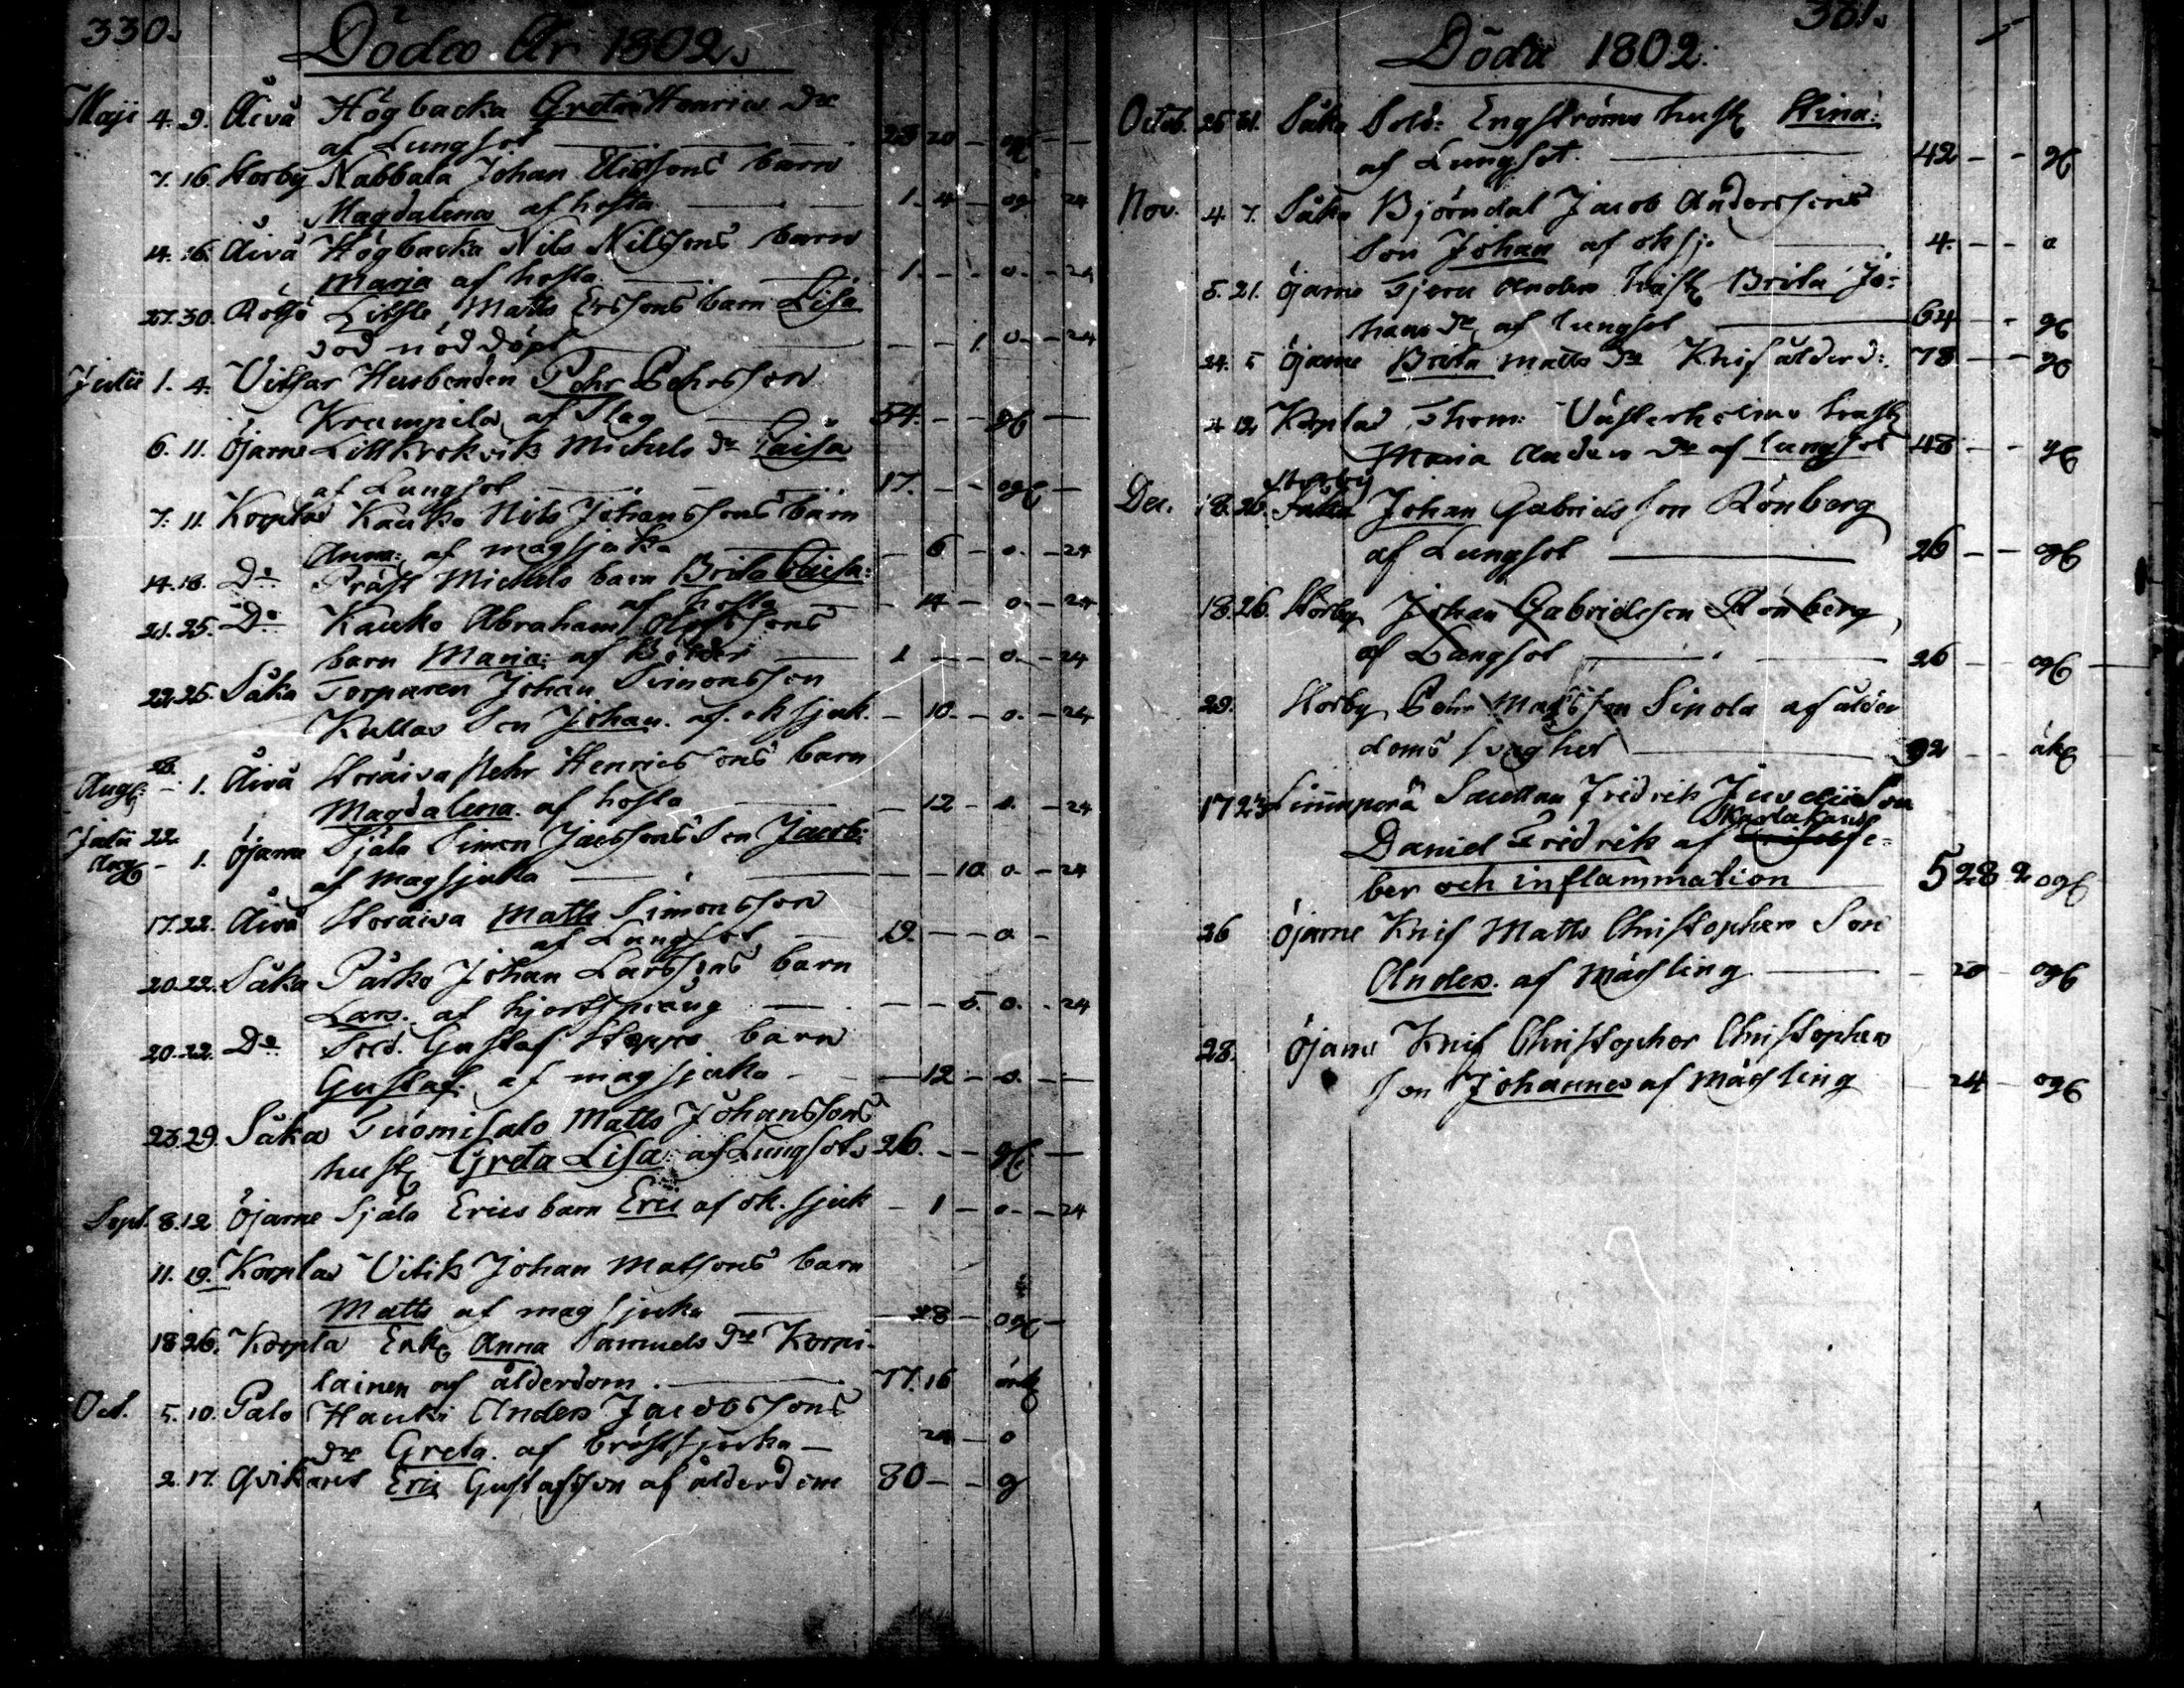 330.
Döda År 1802.
Maji 4. 9. Äivä Högbacka Greta Henrics Dr
af Lungsot 23 20 - og
7. 16. Storby Nabbala Johan Elissons barn
Magdalena af hosta 1. 4 - og 24
14. 16. Äivä Högbacka Nils Nilssons barn
Maria af hosta 1. - - o. - 24
27. 30. Rölsö Litsle Matts Erssons barn Lisa
död nöddöpt - - 1. o. - 24
Julii 1. 4. Vitsar Husbonden Pehr Pehrsson
Krampila af Slag 54. - - gf -
6. 11. Öjarne Lillkrokvik Michels Dr Caisa
af Lungsot 17. - - ogf -
7. 11. Korplax Kauko Nils Johanssons barn
Anna: af magsjuka - 6 - o. - 24
14. 18. Do Präst Michels barn Brita Caisa:
af hosta - 14 - o. - 24
21. 25. Do Kauko Abraham Olofssons
barn Maria: af Bölder 1 - - o. - 24
22. 25. Såka Torparen Johan Simonsson
Kullas Son Johan. af. ok sjuk. - 10. - o. - 24
28.
Aug: - 1. Äivä Storäiva Pehr Henricssons barn
Magdalena af hosta - 12 - o. - 24
Julii 22.
Aug - 1. Öjarne Själs Simon Jacssons Son Jacob:
af magsjuka - - 10 o. - 24
17. 22. Äivä Storäiva Matts Simonsson
af Lungsot 19. - - o -
20. 22. Såka Pärko Johan Larssons barn
Lars. af hjertsprång - - 5. o. - 24
20. 22. Do Sold. Gustaf Stopps barn
Gustaf. af magsjuka - 12 - o. - -
23. 29. Såka Tuomisalo Matts Johanssons
hust Greta Lisa af Lungsot 26. - - gf -
Sept. 8. 12 Öjarne Själs Erics barn Eric af ok. sjuk - 1 - o. - 24
11. 19. Korplax Vitik Johan Matsons barn
Matts af magsjuka 28 - ogf -
18 26. Korpla Enk Anna Samuels Dr Korpi-
lainen af ålderdom. 77. 16
Oct. 5. 10. Palo Hauki Anders Jacobssons
Dr Greta. af bröstsjuka - 24 - o
2. 17. Qvikant Eric Gustafsson af ålderdom 80 - - g
381.
Döda 1802.
Octob. 25 31. Såka Sold: Engströms hust Stina:
af Lungsot. 42 - - gf
Nov. 4 7. Såka Björndal Jacob Anderssons
Son Johan af ok sj. 4. - - o
5. 21. Öjarne Tjera Anders hust Brita Jo-
hans Dr af lungsot 64 - - gf
24. 5 Öjarne Brita Matts Dr Knif ålderd: 78 - - gf
4 12 Korplax Thom: Västerholms hust
Maria Anders Dr af lungsot 48 - - gf
Storby
Dec. 18. 26. Såka Johan Gabrielsson Rönberg
af Lungsot 26 - - ogf
18. 26. Storby Johan Gabrielsson Rönberg
af Lungsot 26 - ogf
29. Storby Pehr Mattsson Sipola af ålder
doms svaghet 92 - -
17 23 Fridrik Son
Skarlakans
Daniel Fridrik af fe-
ber och inflammation 5 28 2 ogf
26 Öjarne Knif Matts Christophers Son
Anders. af Mässling - 20 - ogf
28. Öjarne Knif Christopher Christophers
son Johannes af Mässling - 24 - ogf